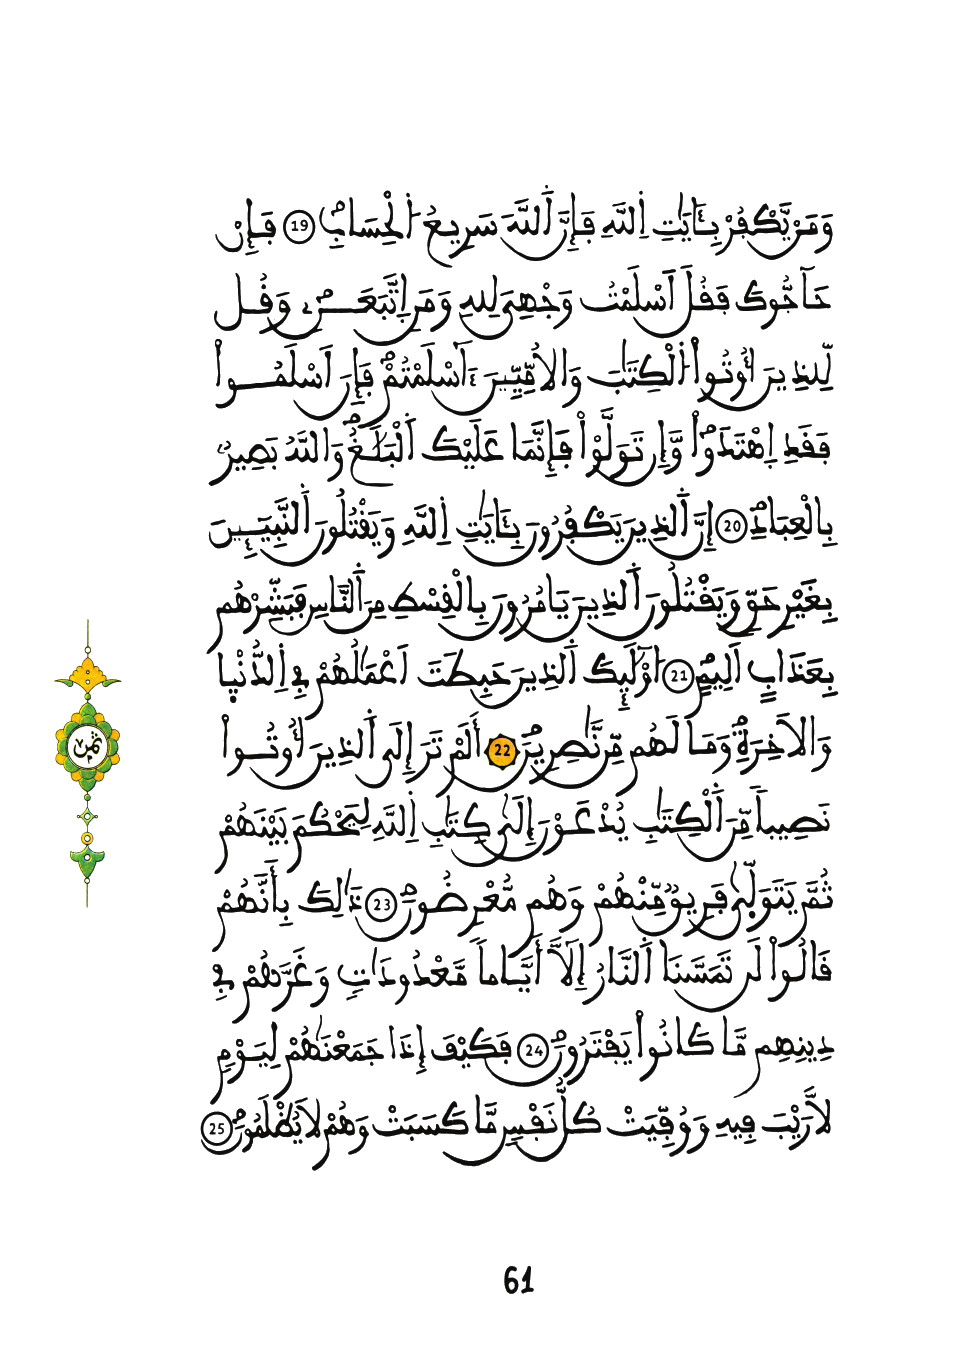 وَمَنْ يَّكْفُرْ بِـَٔايَٰتِ اِ۬للَّهِ فَإِنَّ اَ۬للَّهَ سَرِيعُ اُ۬لْحِسَابِۖ 19 فَإِنْ
حَآجُّوكَ فَقُلَ اَسْلَمْتُ وَجْهِيَ لِلهِ وَمَنِ اِ۪تَّبَعَنِۦۖ وَقُل
لِّلذِينَ أُوتُواْ اُ۬لْكِتَٰبَ وَالُامِّيِّـۧنَ ءَآسْلَمْتُمْۖ فَإِنَ اَسْلَمُواْ
فَقَدِ اِ۪هْتَدَواْۖ وَّإِن تَوَلَّوْاْ فَإِنَّمَا عَلَيْكَ اَ۬لْبَلَٰغُۖ وَاللَّهُ بَصِيرُۢ
بِالْعِبَادِۖ 20 إِنَّ اَ۬لذِينَ يَكْفُرُونَ بِـَٔايَٰتِ اِ۬للَّهِ وَيَقْتُلُونَ اَ۬لنَّبِيَٓـِٕۧنَ
بِغَيْرِ حَقّٖ وَيَقْتُلُونَ اَ۬لذِينَ يَامُرُونَ بِالْقِسْطِ مِنَ اَ۬لنَّاسِ فَبَشِّرْهُم
بِعَذَابٍ اَلِيمٍۖ 21 ا۟وْلَٰٓئِكَ اَ۬لذِينَ حَبِطَتَ اَعْمَٰلُهُمْ فِے اِ۬لدُّنْي۪ا
وَالَاخِرَةِۖ وَمَا لَهُم مِّن نَّٰصِرِينَۖ 22 أَلَمْ تَرَ إِلَى اَ۬لذِينَ أُوتُواْ
نَصِيباٗ مِّنَ اَ۬لْكِتَٰبِ يُدْعَوْنَ إِلَىٰ كِتَٰبِ اِ۬للَّهِ لِيَحْكُمَ بَيْنَهُمْ
ثُمَّ يَتَوَلّ۪ىٰ فَرِيقٞ مِّنْهُمْ وَهُم مُّعْرِضُونَۖ 23 ذَٰلِكَ بِأَنَّهُمْ
قَالُواْ لَن تَمَسَّنَا اَ۬لنَّارُ إِلَّآ أَيَّاماٗ مَّعْدُودَٰتٖ وَغَرَّهُمْ فِے
دِينِهِم مَّا كَانُواْ يَفْتَرُونَۖ 24 فَكَيْفَ إِذَا جَمَعْنَٰهُمْ لِيَوْمٖ
لَّا رَيْبَ فِيهِ وَوُفِّيَتْ كُلُّ نَفْسٖ مَّا كَسَبَتْ وَهُمْ لَا يُظْلَمُونَۖ 25
ثمن
61